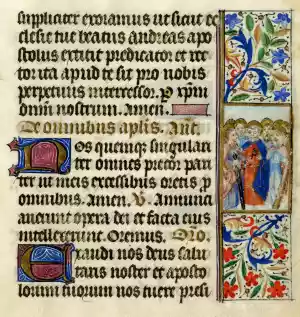 suppliciter exoramus ut sicut ec
clesie tue beatus andreas apo
stolus extitit predicator et rec
tor ita apud te sit pro nobis
perpetuus intercessor. P xpm
dnm nostrum. Amen.
De omnibus aplis. Ant.
Nos quemq; singulari
ter omnes precor pari
ter ut meis excessibus oretis p
omnibus. amen. V. Annuncia
uerunt opera dei et facta eius
intellexerunt. Oremus. Oro.
Exaudi nos deus salu
taris noster et aposto
lorum tuorum nos tuere presi